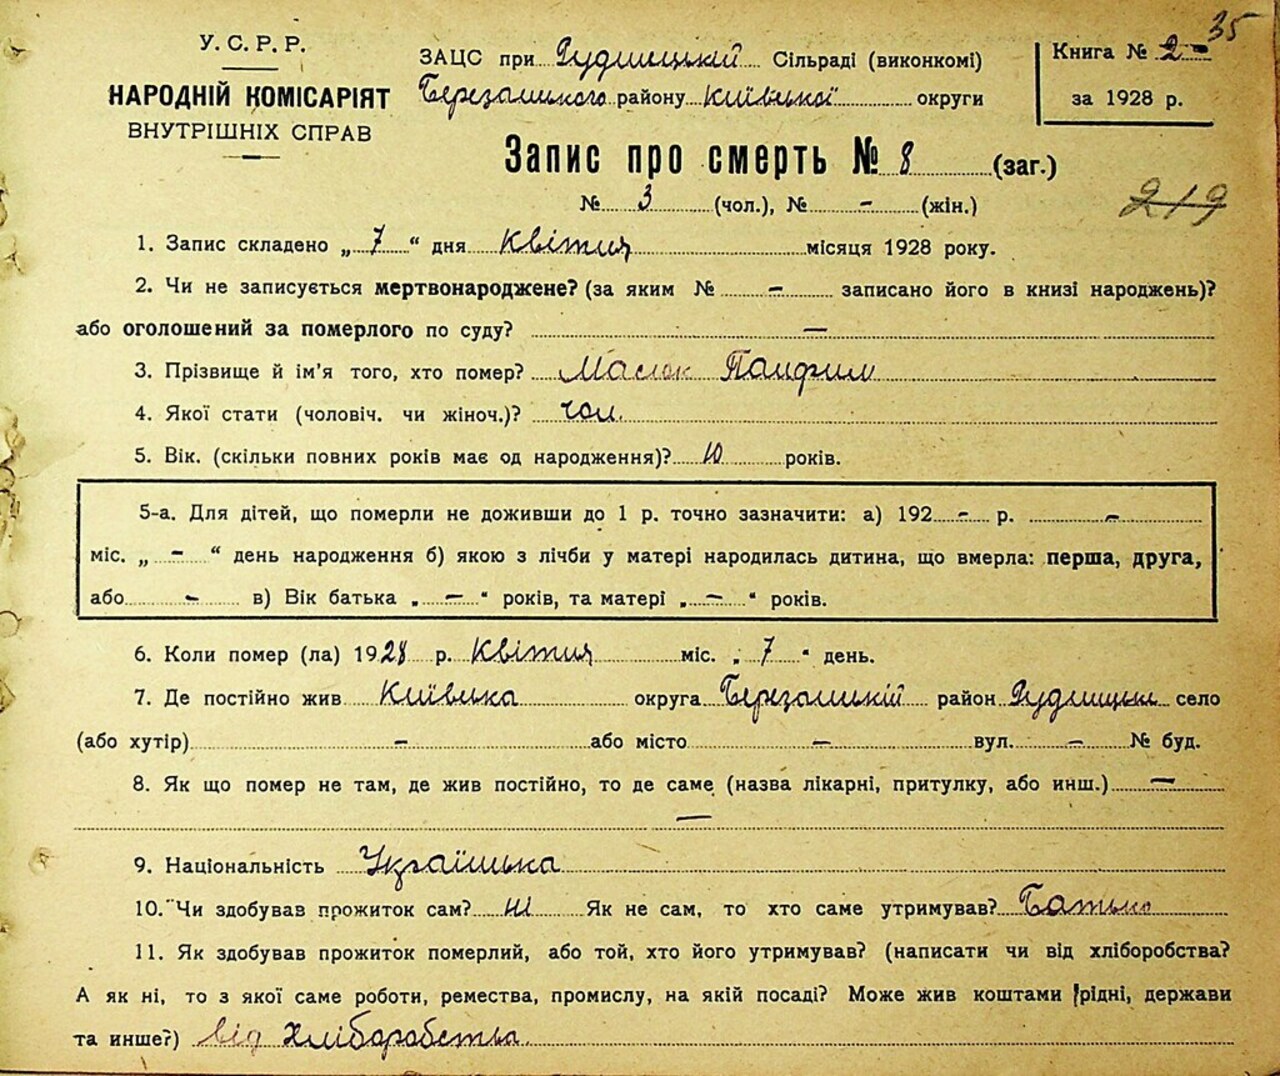 35
У. С. Р. Р.
НАРОДНІЙ КОМІСАРІЯТ
ВНУТРІШНІХ СПРАВ
ЗАЦС при Рудницкій Сільраді (виконкомі)
Березанського району Київської округи
Книга № 2
за 1928 р.
Запис про смерть № 8 (заг.)
№ 3 (чол.), № - (жін.)
219
1. Запис складено „ 7 “ дня Квітня місяця 1928 року.
2. Чи не записується мертвонароджене? (за яким № - записано його в книзі народжень)?
або оголошений за померлого по суду? —
3. Прізвище й ім'я того, хто помер? Маслюк Панфил
4. Якої стати (чоловіч. чи жіноч.)? чол.
5. Вік. (скільки повних років має од народження)? 10 років.
5-а. Для дітей, що померли не доживши до 1 р. точно зазначити: а) 192 - р. -
міс. „ - “ день народження б) якою з лічби у матері народилась дитина, що вмерла: перша, друга,
або - в) Вік батька „ - “ років, та матері „ - “ років.
6. Коли помер (ла) 1928 р. Квітня міс. „ 7 “ день.
7. Де постійно жив Київська округа Березанський район село
(або хутір) - або місто - вул. - № буд.
8. Як що помер не там, де жив постійно, то де саме (назва лікарні, притулку, або инш.) —
—
9. Національність Українська
10. Чи здобував прожиток сам? ні Як не сам, то хто саме утримував? Батько
11. Як здобував прожиток померлий, або той, хто його утримував? (написати чи від хліборобства?
А як ні, то з якої саме роботи, ремества, промислу, на якій посаді? Може жив коштами рідні, держави
та инше?) від Хліборобства.